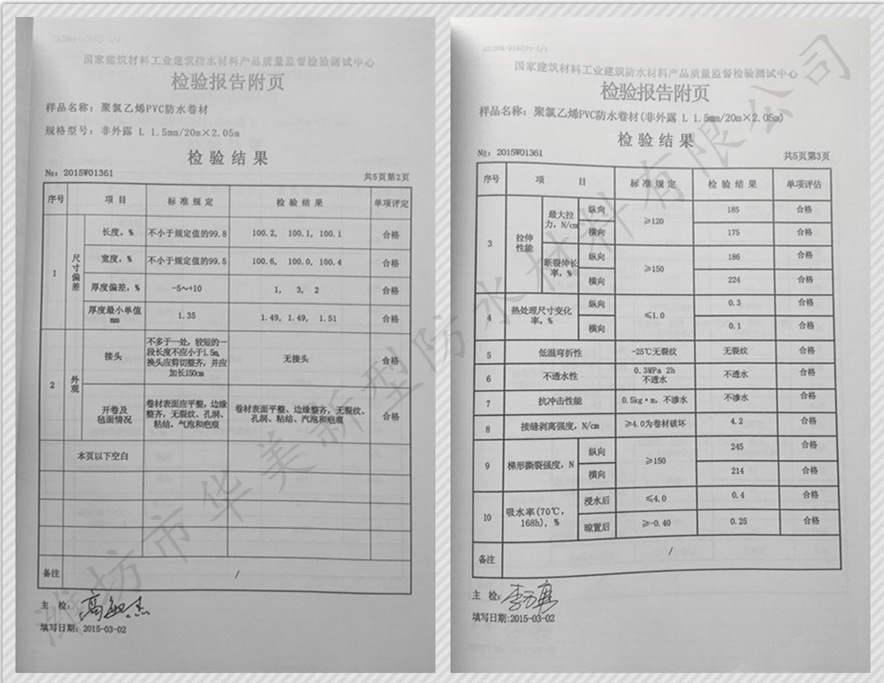 国家建筑材料工业建筑防水材料产品质量监督检验测试中心
检验报告附页
样品名称：聚氯乙烯PVC防水卷材
规格型号：非外露 L 1.5mm/20m×2.05m
检验结果
№：2015W01361 共5页第2页
序号 项目 标准规定 检验结果 单项评定
1 尺寸偏差 长度，% 不小于规定值的99.8 100.2, 100.1, 100.1 合格
宽度，% 不小于规定值的99.5 100.6, 100.0, 100.4 合格
厚度偏差，% -5～+10 1, 3, 2 合格
厚度最小单值 mm 1.35 1.49, 1.49, 1.51 合格
2 外观 接头 不多于一处，较短的一
段长度不应小于1.5m，
换头应剪切整齐，并应
加长150cm 无接头 合格
开卷及
毡面情况 卷材表面应平整，边缘
整齐，无裂纹、孔洞、
粘结，气泡和疤痕 卷材表面平整、边缘整齐，无裂纹、
孔洞、粘结、汽泡和疤痕 合格
本页以下空白
备注 /
主 检：
填写日期：2015-03-02
国家建筑材料工业建筑防水材料产品质量监督检验测试中心
检验报告附页
样品名称：聚氯乙烯PVC防水卷材(非外露 L 1.5mm/20m×2.05m)
检验结果
№：2015W01361 共5页第3页
序号 项目 标准规定 检验结果 单项评估
3 拉伸性能 最大拉力，N/cm 纵向 ≥120 185 合格
横向 175 合格
断裂伸长率，% 纵向 ≥150 186 合格
横向 224 合格
4 热处理尺寸变化率，% 纵向 ≤1.0 0.3 合格
横向 0.1 合格
5 低温弯折性 -25℃无裂纹 无裂纹 合格
6 不透水性 0.3MPa 2h
不透水 不透水 合格
7 抗冲击性能 0.5kg·m，不渗水 不渗水 合格
8 接缝剥离强度，N/cm ≥4.0为卷材破坏 4.2 合格
9 梯形撕裂强度，N 纵向 ≥150 245 合格
横向 214 合格
10 吸水率(70℃，
168h)，% 浸水后 ≤4.0 0.4 合格
晾置后 ≥-0.40 0.25 合格
备注 /
主 检：
填写日期:2015-03-02
潍坊市华美新型防水材料有限公司